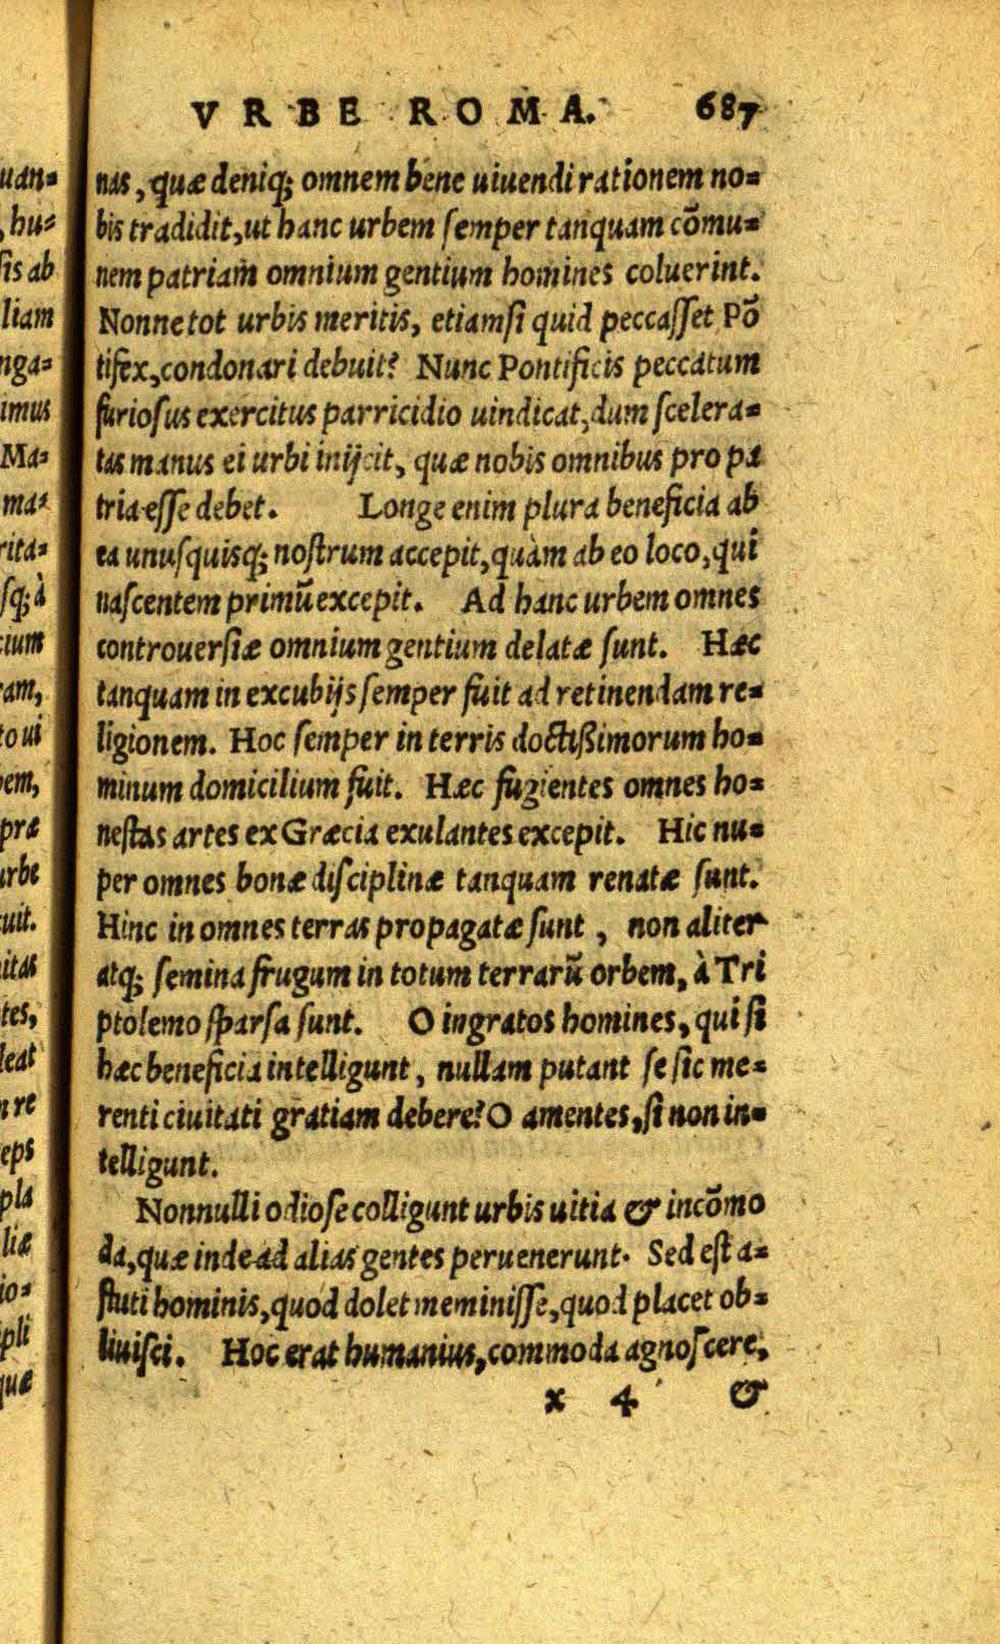 VRBE ROMA. 687
nas, quæ deniq; omnem bene uiuendi rationem no=
bis tradidit, ut hanc urbem ſemper tanquam cõmu=
nem patriam omnium gentium homines coluerint.
Nonne tot urbis meritis, etiamſi quid peccaſſet Põ
tifex, condonari debuit? Nunc Pontificis peccatum
furioſus exercitus parricidio uindicat, dum ſcelera=
tas manus ei urbi inijcit, quæ nobis omnibus pro pa
tria eſſe debet. Longe enim plura beneficia ab
ea unuſquisq; noſtrum accepit, quàm ab eo loco, qui
naſcentem primũ excepit. Ad hanc urbem omnes
controuerſiæ omnium gentium delatæ ſunt. Hæc
tanquam in excubijs ſemper fuit ad retinendam re=
ligionem. Hoc ſemper in terris doctißimorum ho=
minum domicilium fuit. Hæc fugientes omnes ho=
neſtas artes ex Græcia exulantes excepit. Hic nu=
per omnes bonæ diſciplinæ tanquam renatæ ſunt.
Hinc in omnes terras propagatæ ſunt, non aliter
atq; ſemina frugum in totum terrarũ orbem, à Tri
ptolemo ſparſa ſunt. O ingratos homines, qui ſi
hæc beneficia intelligunt, nullam putant ſe ſic me=
renti ciuitati gratiam debere? O amentes, ſi non in=
telligunt.
Nonnulli odioſe colligunt urbis uitia & incõmo
da, quæ inde ad alias gentes peruenerunt. Sed eſt a=
ſtuti hominis, quod dolet meminiſſe, quod placet ob=
liuiſci. Hoc erat humanius, commoda agnoſcere,
x 4 &
uan=
, hu=
ſis ab
liam
nga=
imus
Ma=
ma=
rita=
ſq; à
ium
am,
to ui
em,
præ
urbe
uit.
itas
tes,
leat
n re
eps
pla
liæ
io=
pli
quæ